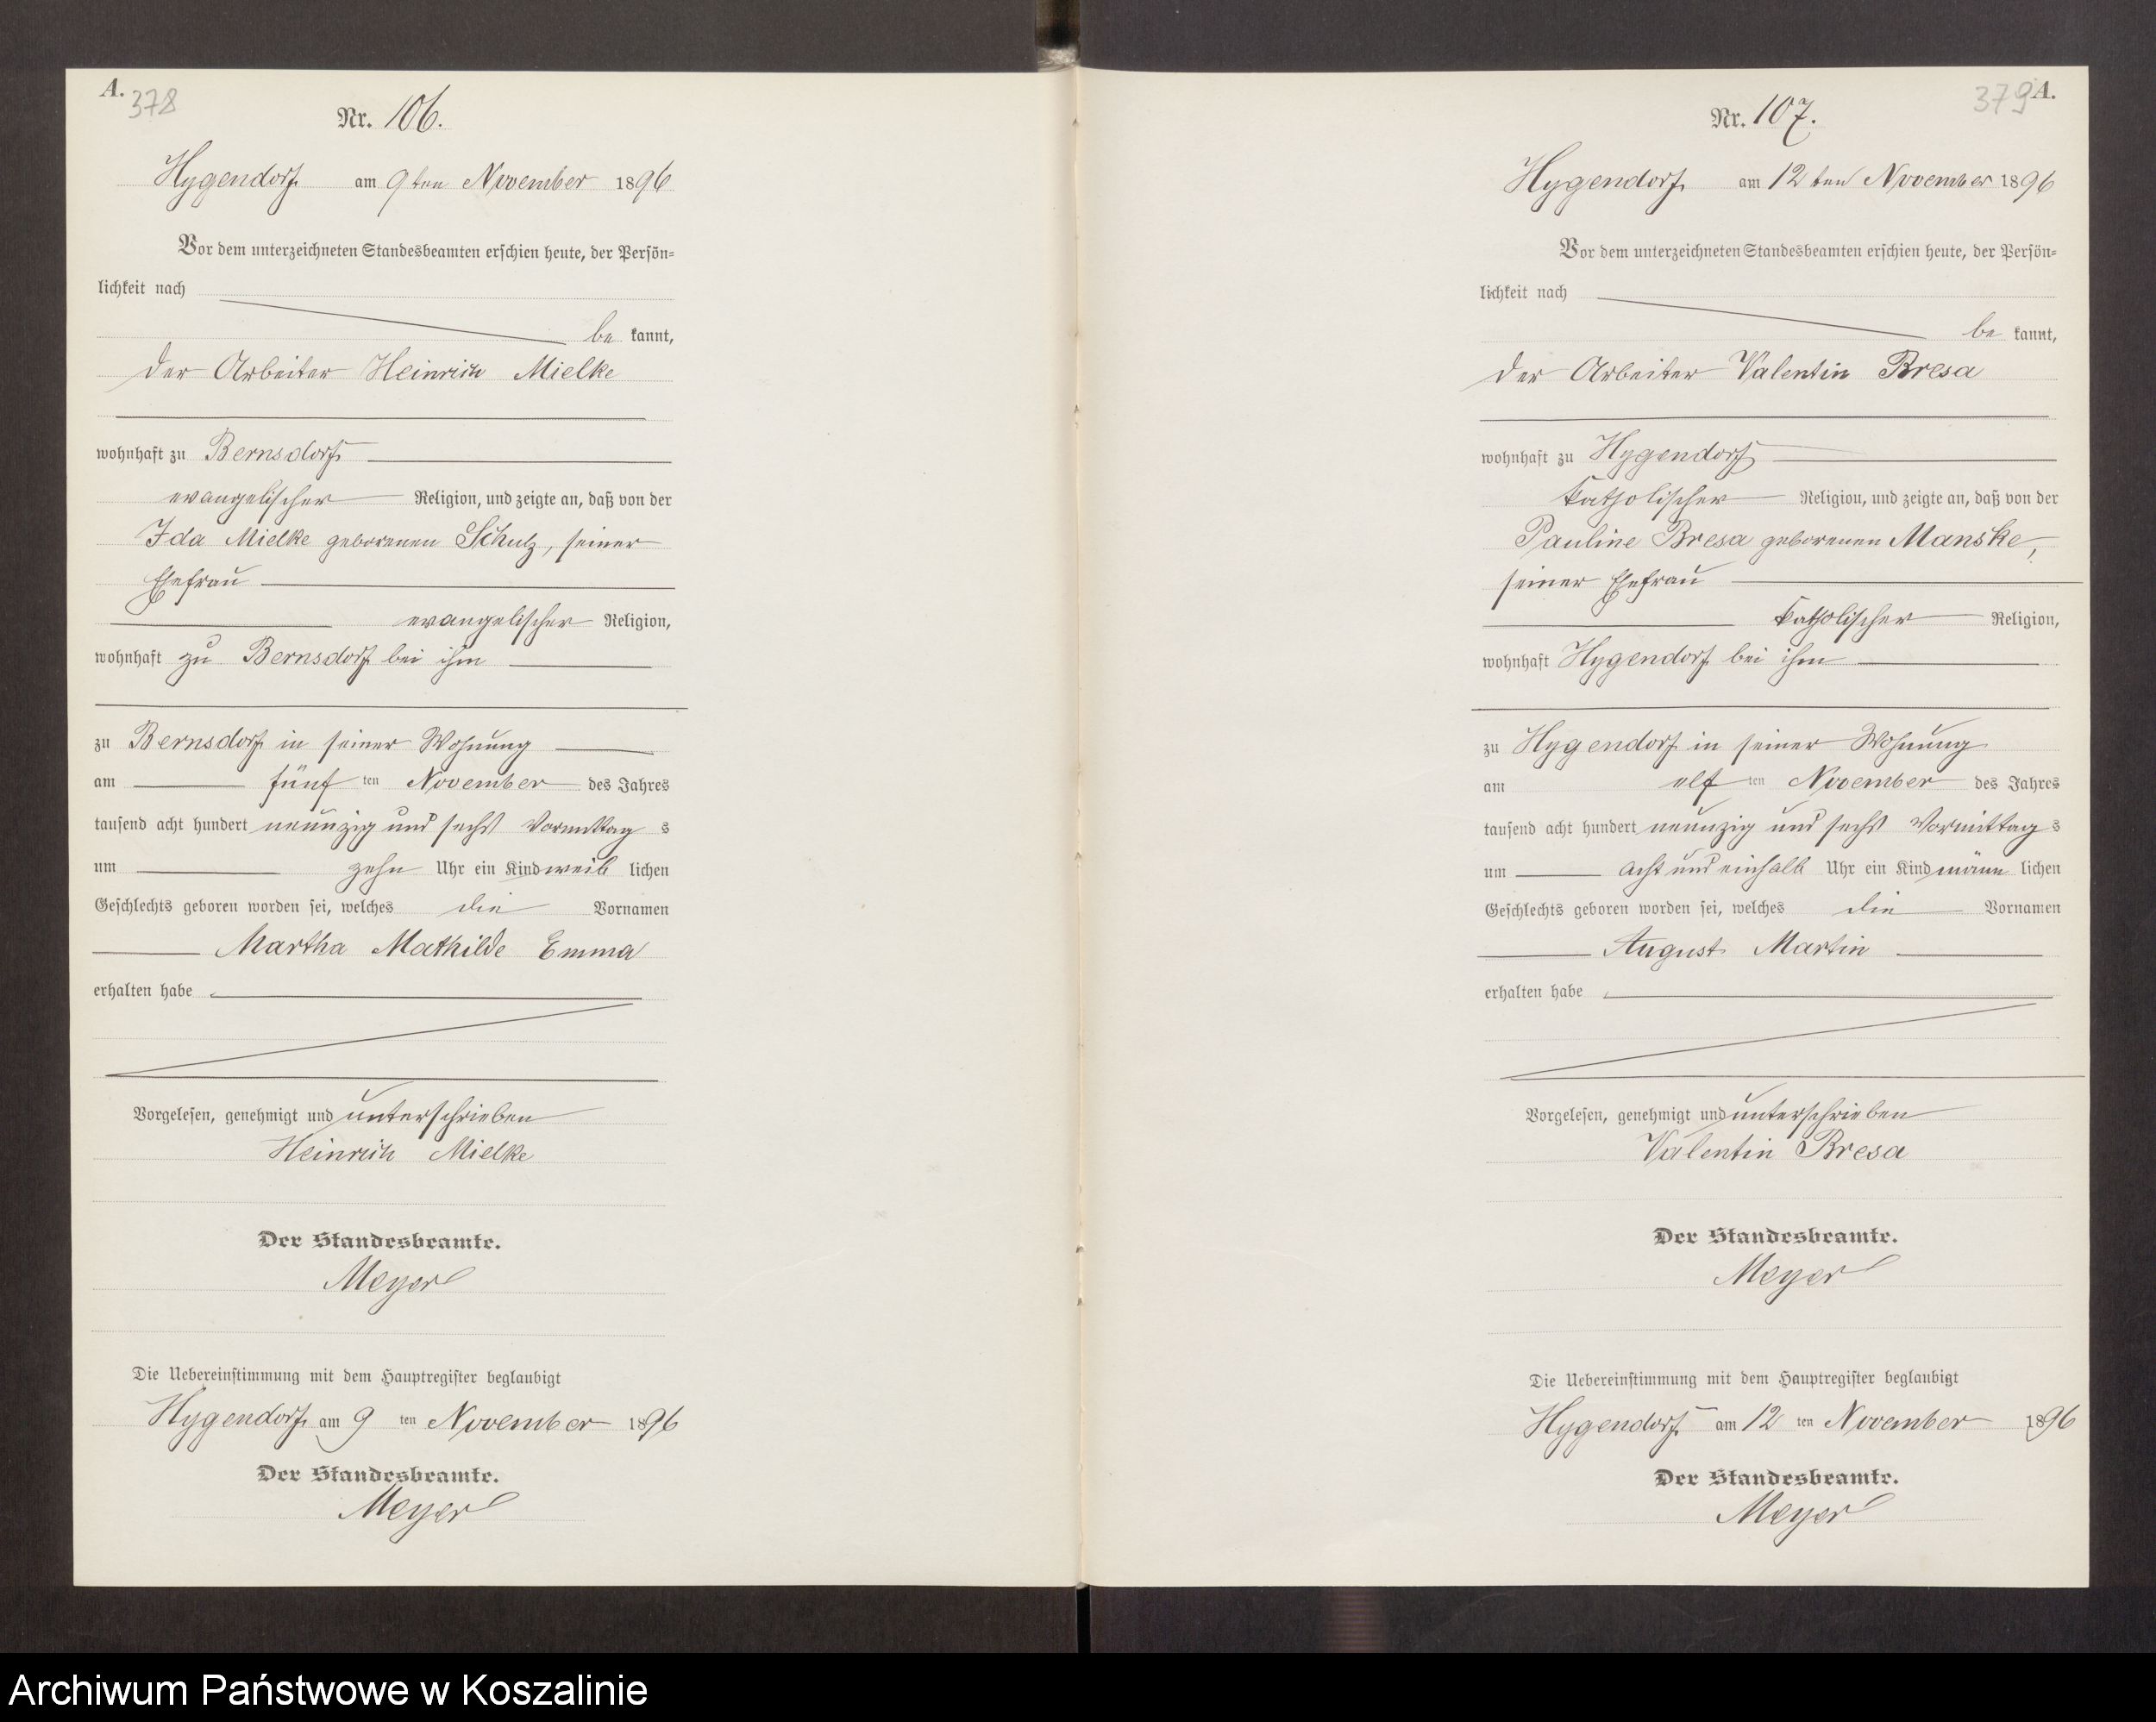 A.
378
Nr. 106.
Hygendorf am 9ten November 1896
Vor dem unterzeichneten Standesbeamten erschien heute, der Persön-
lichkeit nach
be kannt,
der Arbeiter Heinrich Mielke
wohnhaft zu Bernsdorf
evangelischer Religion, und zeigte an, daß von der
Ida Mielke geborenen Schulz, seiner
Ehefrau
evangelischer Religion,
wohnhaft zu Bernsdorf bei ihm
zu Bernsdorf in seiner Wohnung
am fünf ten November des Jahres
tausend acht hundert neunzig und sechs Vormittag s
um zehn Uhr ein Kind weib lichen
Geschlechts geboren worden sei, welches die Vornamen
Martha Mathilde Emma
erhalten habe
Vorgelesen, genehmigt und unterschrieben
Heinrich Mielke
Der Standesbeamte.
Meyer
Die Uebereinstimmung mit dem Hauptregister beglaubigt
Hygendorf am 9 ten November 1896
Der Standesbeamte.
Meyer
379 A.
Nr. 107.
Hygendorf am 12ten November 1896
Vor dem unterzeichneten Standesbeamten erschien heute, der Persön-
lichkeit nach
be kannt,
der Arbeiter Valentin Bresa
wohnhaft zu Hygendorf
katholischer Religion, und zeigte an, daß von der
Pauline Bresa geborenen Manske,
seiner Ehefrau
katholischer Religion,
wohnhaft Hygendorf bei ihm
zu Hygendorf in seiner Wohnung
am elf ten November des Jahres
tausend acht hundert neunzig und sechs Vormittag s
um acht und einhalb Uhr ein Kind männ lichen
Geschlechts geboren worden sei, welches die Vornamen
August Martin
erhalten habe
Vorgelesen, genehmigt und unterschrieben
Valentin Bresa
Der Standesbeamte.
Meyer
Die Uebereinstimmung mit dem Hauptregister beglaubigt
Hygendorf am 12 ten November 1896
Der Standesbeamte.
Meyer
Archiwum Państwowe w Koszalinie